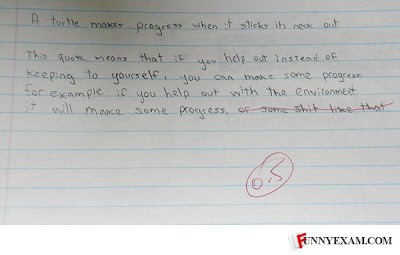 A turtle makes progress when it sticks its neck out
This quote means that if you help out instead of
keeping to yourself, you can make some progress.
for example if you help out with the environment
it will make some progress. or some shit like that
0.5
FUNNYEXAM.COM